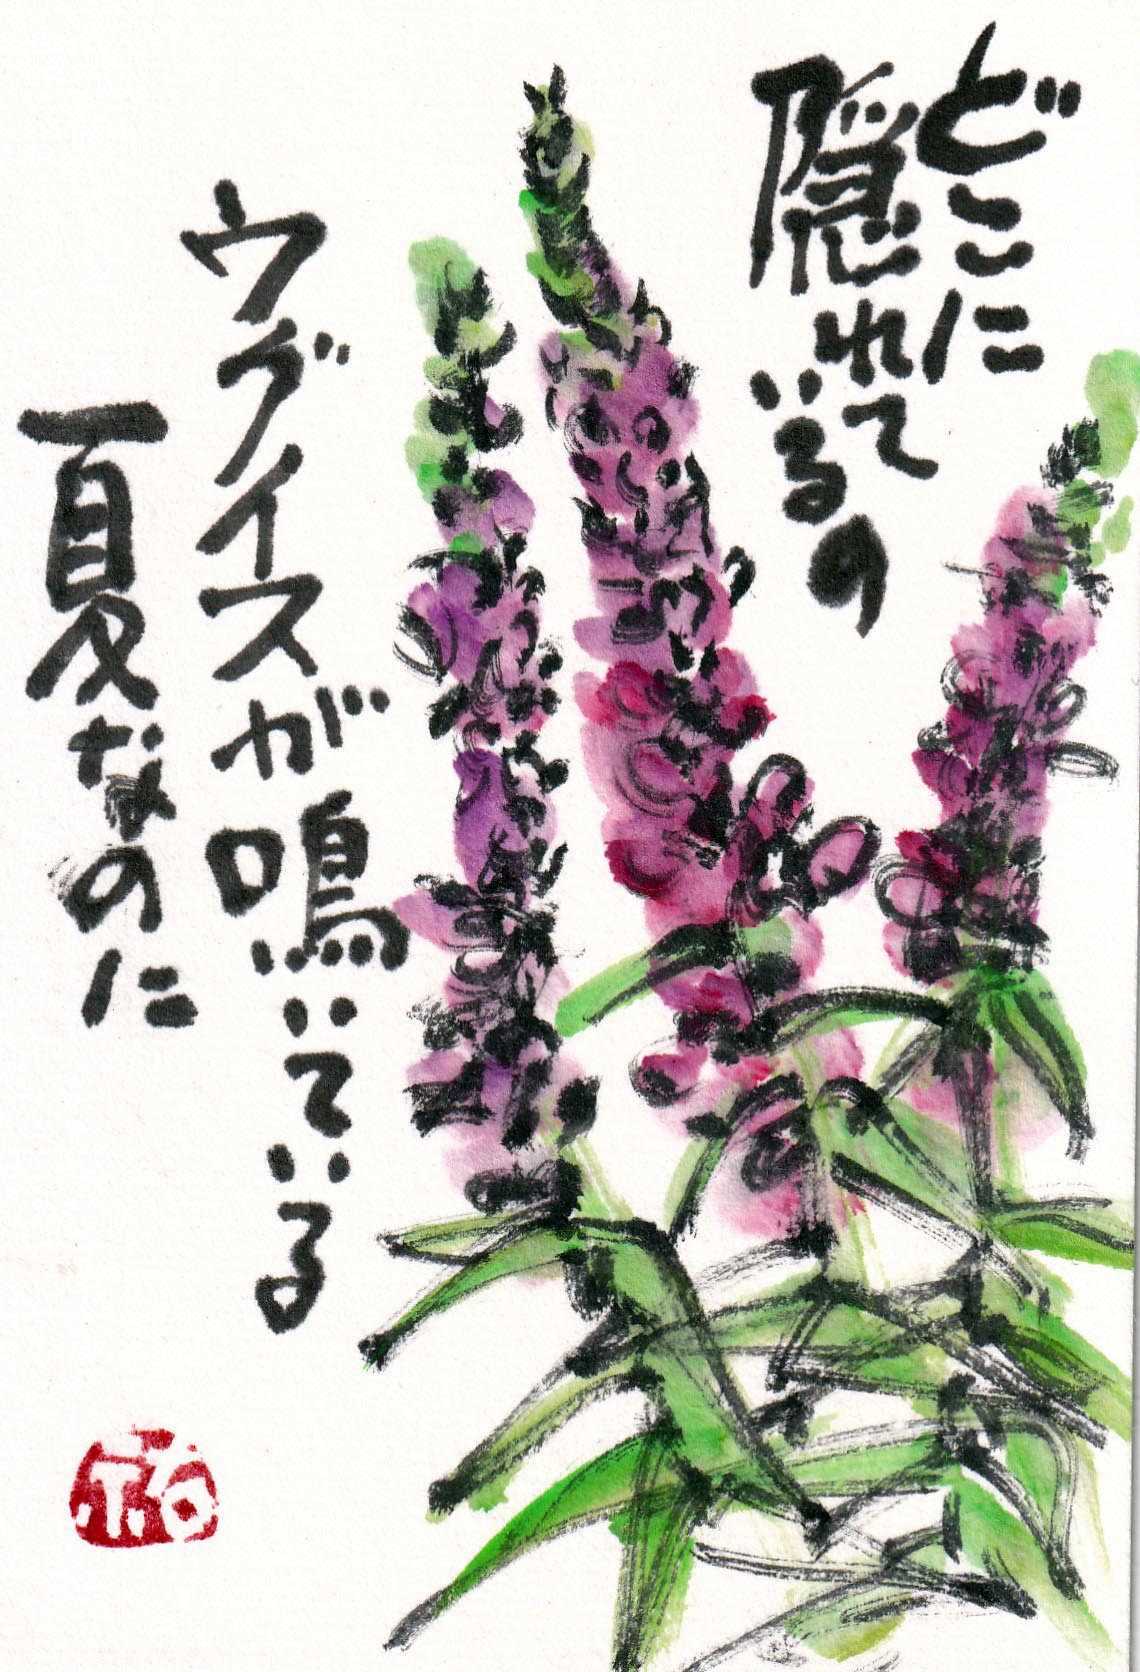 どこに
隠れているの
ウグイスが鳴いている
夏なのに